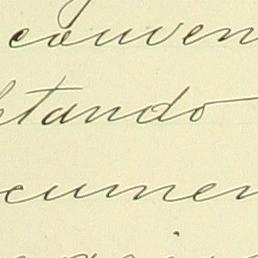 conven
tando
cumen